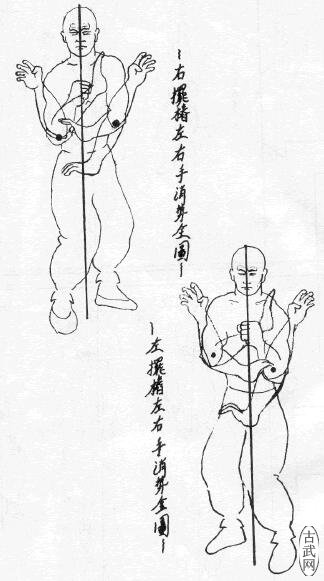 ~右擺樁左右手消势全圖~
~左擺樁左右手消势全圖~
(古武网)